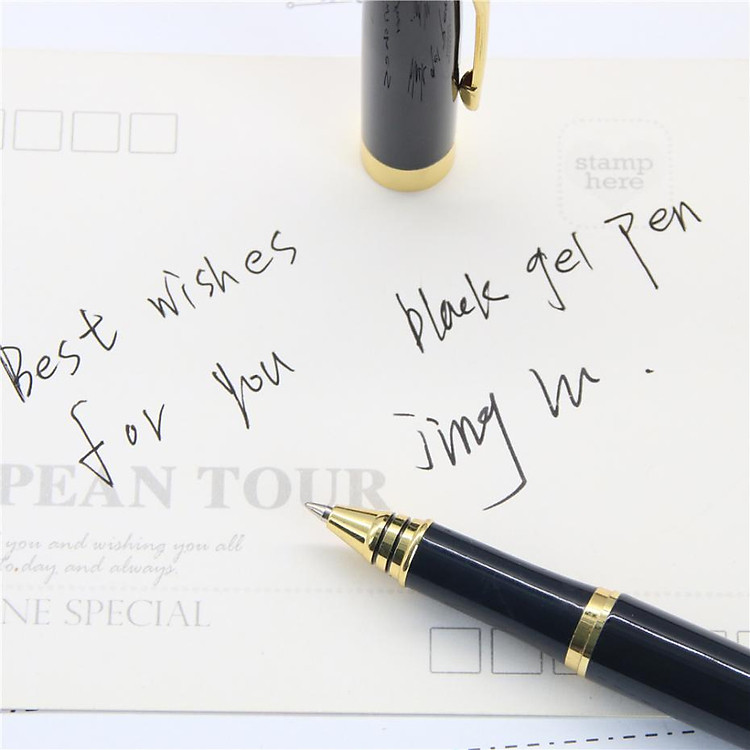 stamp
here
Best wishes
for you
black gel pen
jing
PEAN TOUR
you and wishing you all
to.day and always.
NE SPECIAL